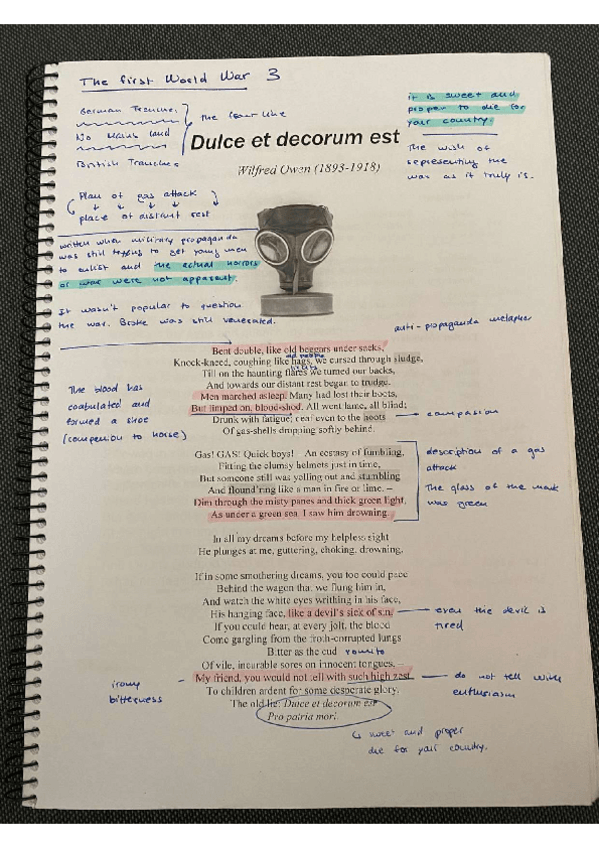 The First World War 3
German Trenches
No Mans land
British Trenches
the front line
it is sweet and
proper to die for
your country.
Dulce et decorum est
Wilfred Owen (1893-1918)
The wish of
representing the
war as it truly is.
Plan of gas attack
place of distant rest
written when military propaganda
was still trying to get young men
to enlist and the actual horrors
of war were not apparent.
It wasn't popular to question
the war. Broke was still venerated.
anti-propaganda metapher
Bent double, like old beggars under sacks,
Knock-kneed, coughing like hags, we cursed through sludge,
Till on the haunting flares we turned our backs,
And towards our distant rest began to trudge.
Men marched asleep. Many had lost their boots,
But limped on, blood-shod. All went lame, all blind;
Drunk with fatigue; deaf even to the hoots
Of gas-shells dropping softly behind.
The blood has
coagulated and
formed a shoe
(comparison to horse)
compassion
Gas! GAS! Quick boys! An ecstasy of fumbling,
Fitting the clumsy helmets just in time,
But someone still was yelling out and stumbling
And flound'ring like a man in fire or lime. –
Dim through the misty panes and thick green light,
As under a green sea, I saw him drowning.
description of a gas
attack
The glass of the mask
was green
In all my dreams before my helpless sight
He plunges at me, guttering, choking, drowning.
If in some smothering dreams, you too could pace
Behind the wagon that we flung him in,
And watch the white eyes writhing in his face,
His hanging face, like a devil's sick of sin,
If you could hear, at every jolt, the blood
Come gargling from the froth-corrupted lungs
Bitter as the cud vomits
Of vile, incurable sores on innocent tongues, –
My friend, you would not tell with such high zest
To children ardent for some desperate glory,
The old lie: Dulce et decorum est
Pro patria mori.
even the devil is
tired
do not tell with
enthusiasm
irony
bitterness
sweet and proper
die for your country.